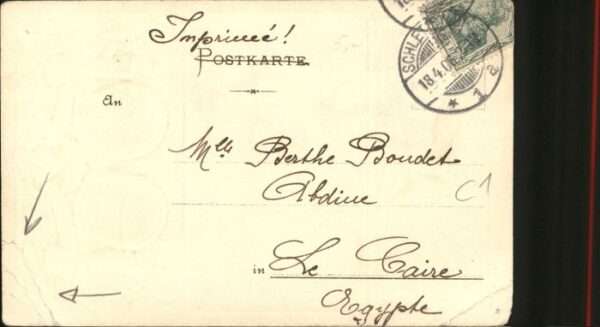 Imprimeé!
POSTKARTE.
SCHLE
18.4.06
* 1 a
An
Mlle Berthe Boudet
Abdine
C1
in Le Caire
Egypte